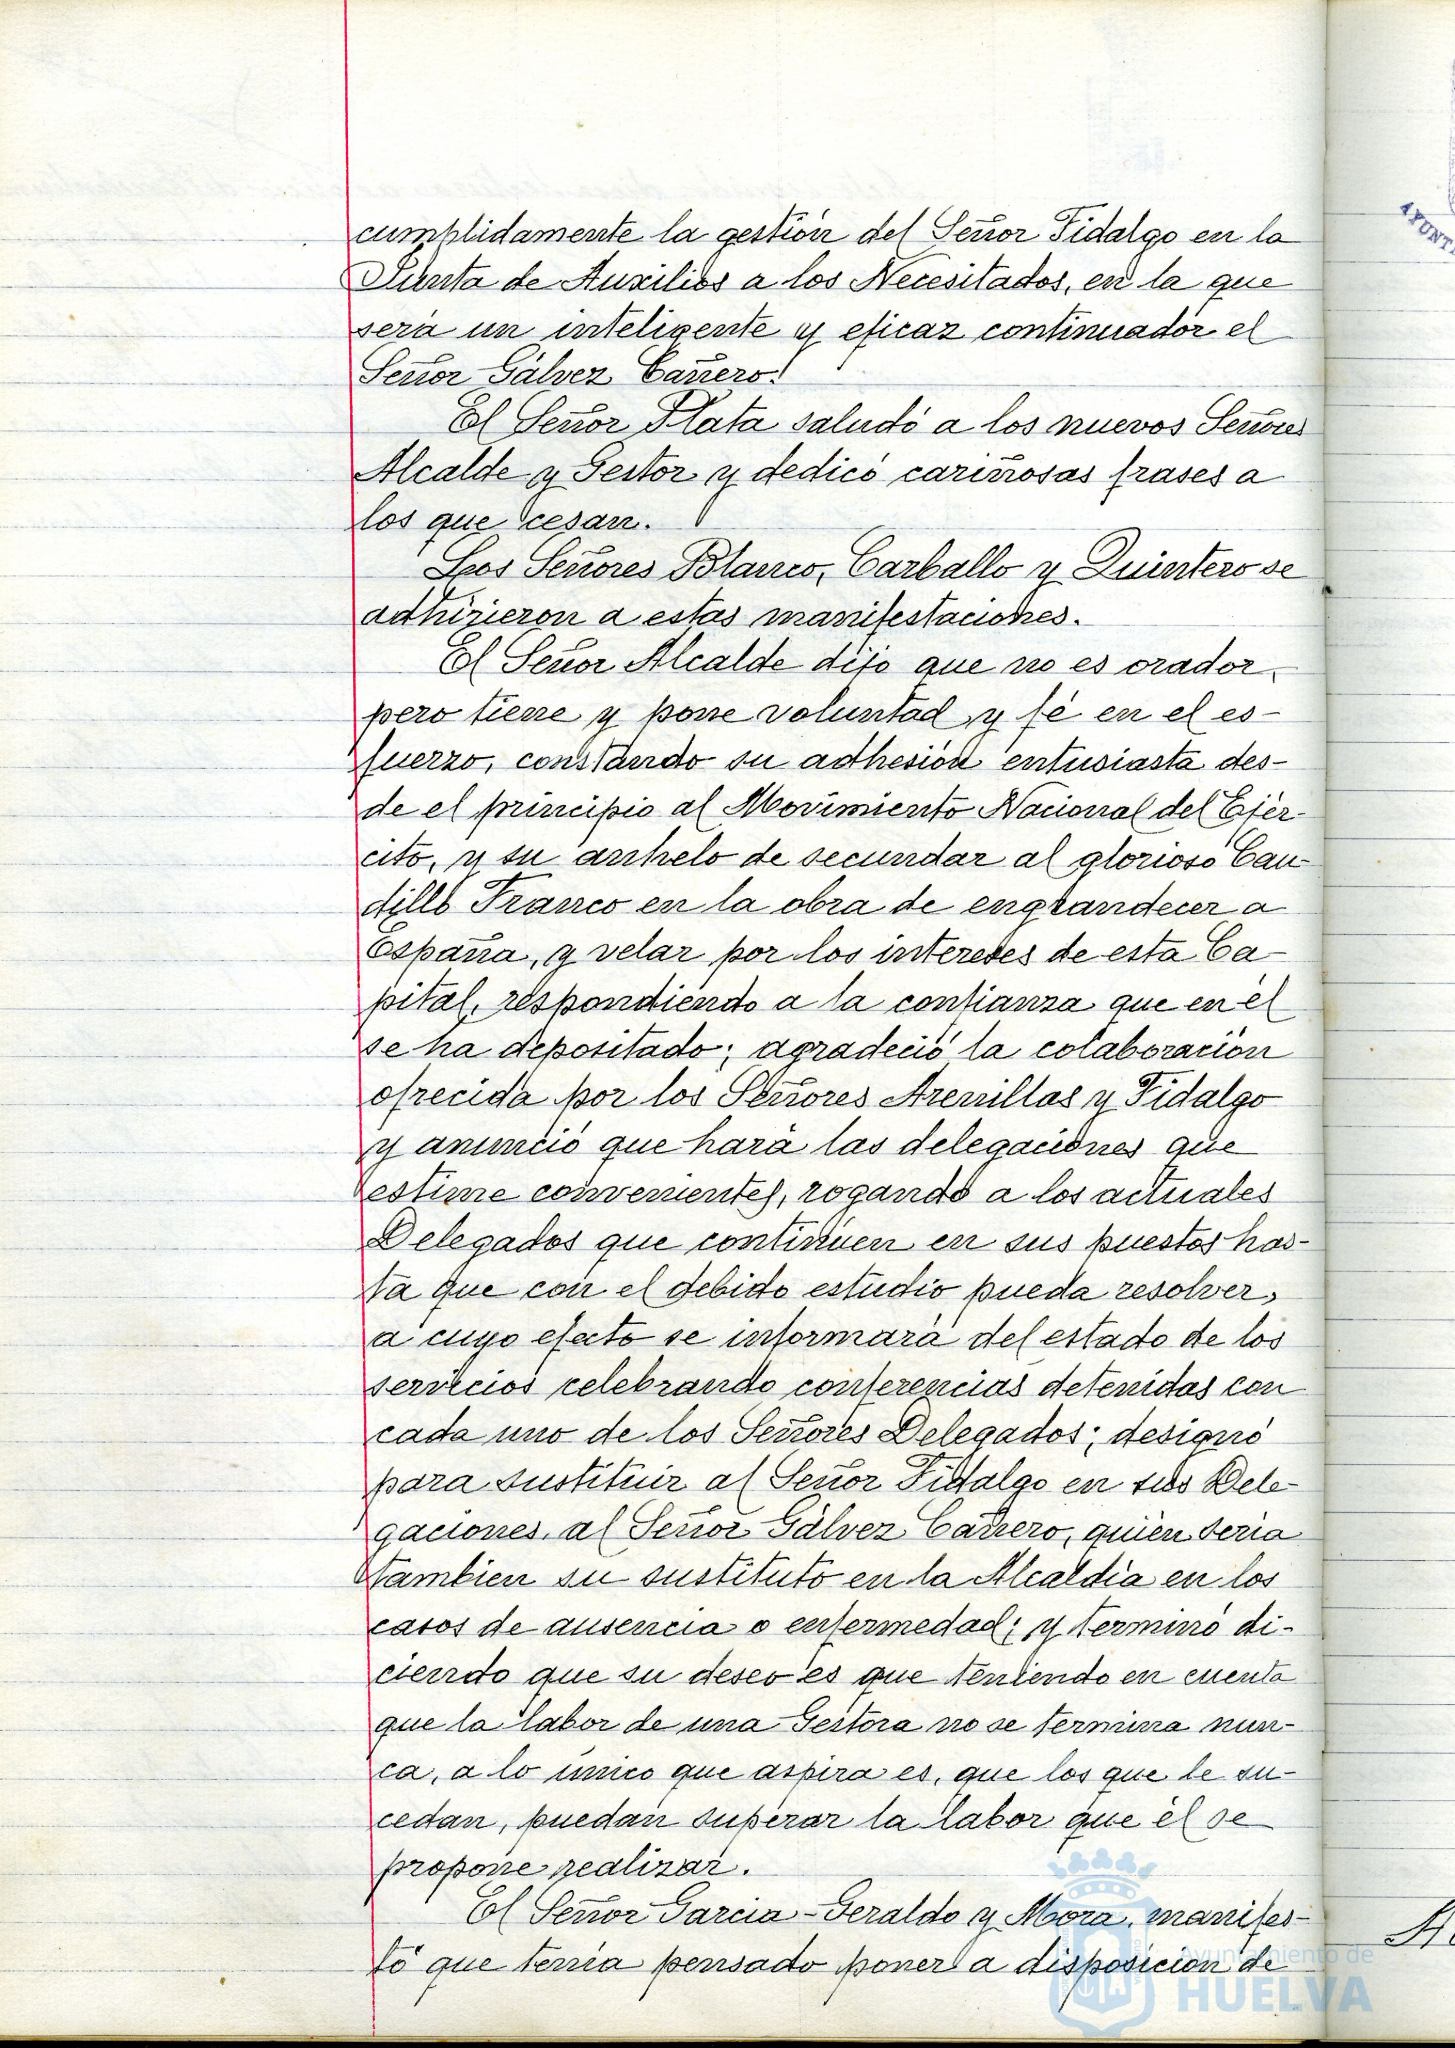 cumplidamente la gestión del Señor Fidalgo en la
Junta de Auxilios a los Necesitados, en la que
será un inteligente y eficaz continuador el
Señor Gálvez Cañero.
El Señor Plata saludó a los nuevos Señores
Alcalde y Gestor y dedicó cariñosas frases a
los que cesan.
Los Señores Blanco, Carballo y Quintero se
adhirieron a estas manifestaciones.
El Señor Alcalde dijo que no es orador,
pero tiene y pone voluntad y fé en el es-
fuerzo, constando su adhesión entusiasta des-
de el principio al Movimiento Nacional del Ejér-
cito, y su anhelo de secundar al glorioso Cau-
dillo Franco en la obra de engrandecer a
España, y velar por los intereses de esta Ca-
pital, respondiendo a la confianza que en él
se ha depositado; agradeció la colaboración
ofrecida por los Señores Arenillas y Fidalgo
y anunció que hará las delegaciones que
estime convenientes, rogando a los actuales
Delegados que continúen en sus puestos has-
ta que con el debido estudio pueda resolver,
a cuyo efecto se informará del estado de los
servicios celebrando conferencias detenidas con
cada uno de los Señores Delegados; designó
para sustituir al Señor Fidalgo en sus Dele-
gaciones, al Señor Gálvez Cañero, quien sería
tambien su sustituto en la Alcaldía en los
casos de ausencia o enfermedad; y terminó di-
ciendo que su deseo es que teniendo en cuenta
que la labor de una Gestora no se termina nun-
ca, a lo único que aspira es, que los que le su-
cedan, puedan superar la labor que él se
propone realizar.
El Señor Garcia-Geraldo y Mora, manifes-
tó que tenía pensado poner a disposición de
Ayuntamiento de
HUELVA